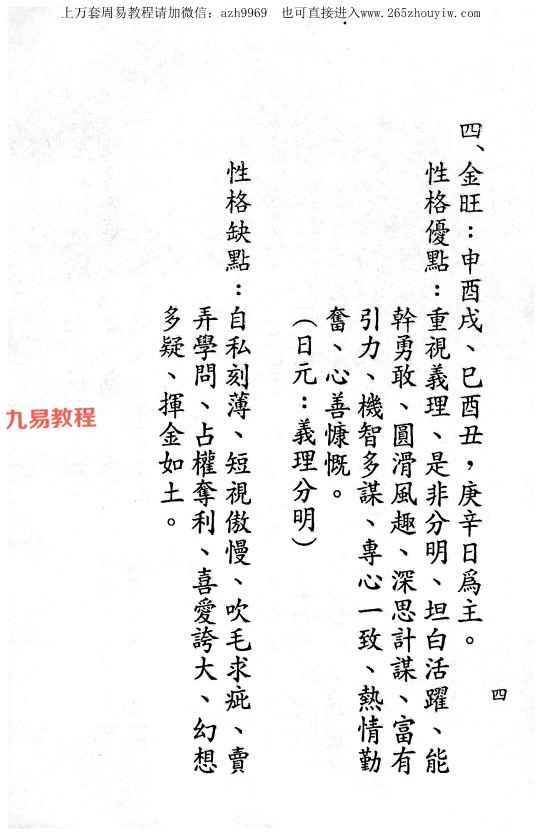 上万套周易教程请加微信：azh9969 也可直接进入www.265zhouyiw.com
四、金旺：申酉戌、巳酉丑，庚辛日爲主。
性格優點：重視義理、是非分明、坦白活躍、能
幹勇敢、圓滑風趣、深思計謀、富有
引力、機智多謀、專心一致、熱情勤
奮、心善慷慨。
（日元：義理分明）
性格缺點：自私刻薄、短視傲慢、吹毛求疵、賣
弄學問、占權奪利、喜愛誇大、幻想
多疑、揮金如土。
四
九易教程